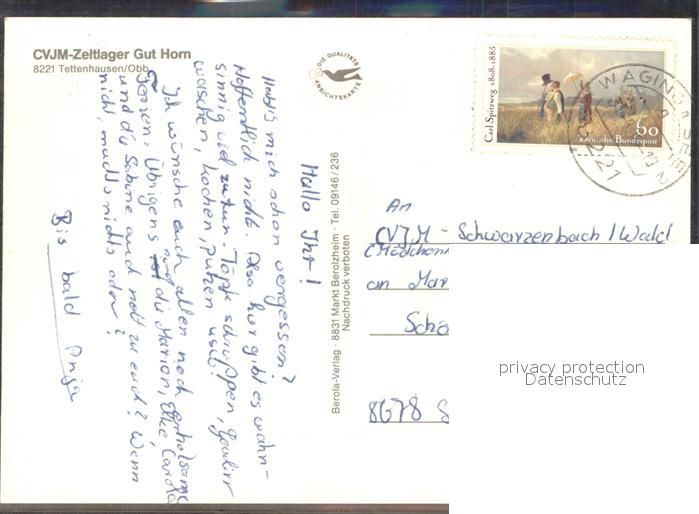 CVJM-Zeltlager Gut Horn
8221 Tettenhausen/Obb.
DIE QUALITÄTS
ANSICHTSKARTE
Carl Spitzweg 1808-1885
60
Deutsche Bundespost
WAGING A SEE 2
8221
Hallo Ihr!
Habts mich schon vergessen?
Hoffentlich nicht. Also hier gibt es wahn-
sinnig viel zutun. Töpfe schruppen, Geschirr
waschen, kochen, putzen usw.!
Ich wünsche euch allen noch erholsame
Ferien. Übrigens die Marion, Elke, Carola
und die Sabine auch nett zu euch? Wenn
nicht, machts nichts oder?
Bis bald Anja
Berola-Verlag · 8831 Markt Berolzheim · Tel. 09146/236
Nachdruck verboten
An
CVJM - Schwarzenbach/Wald
(Mädchen
an Mar
Scho
8678 S
privacy protection
Datenschutz